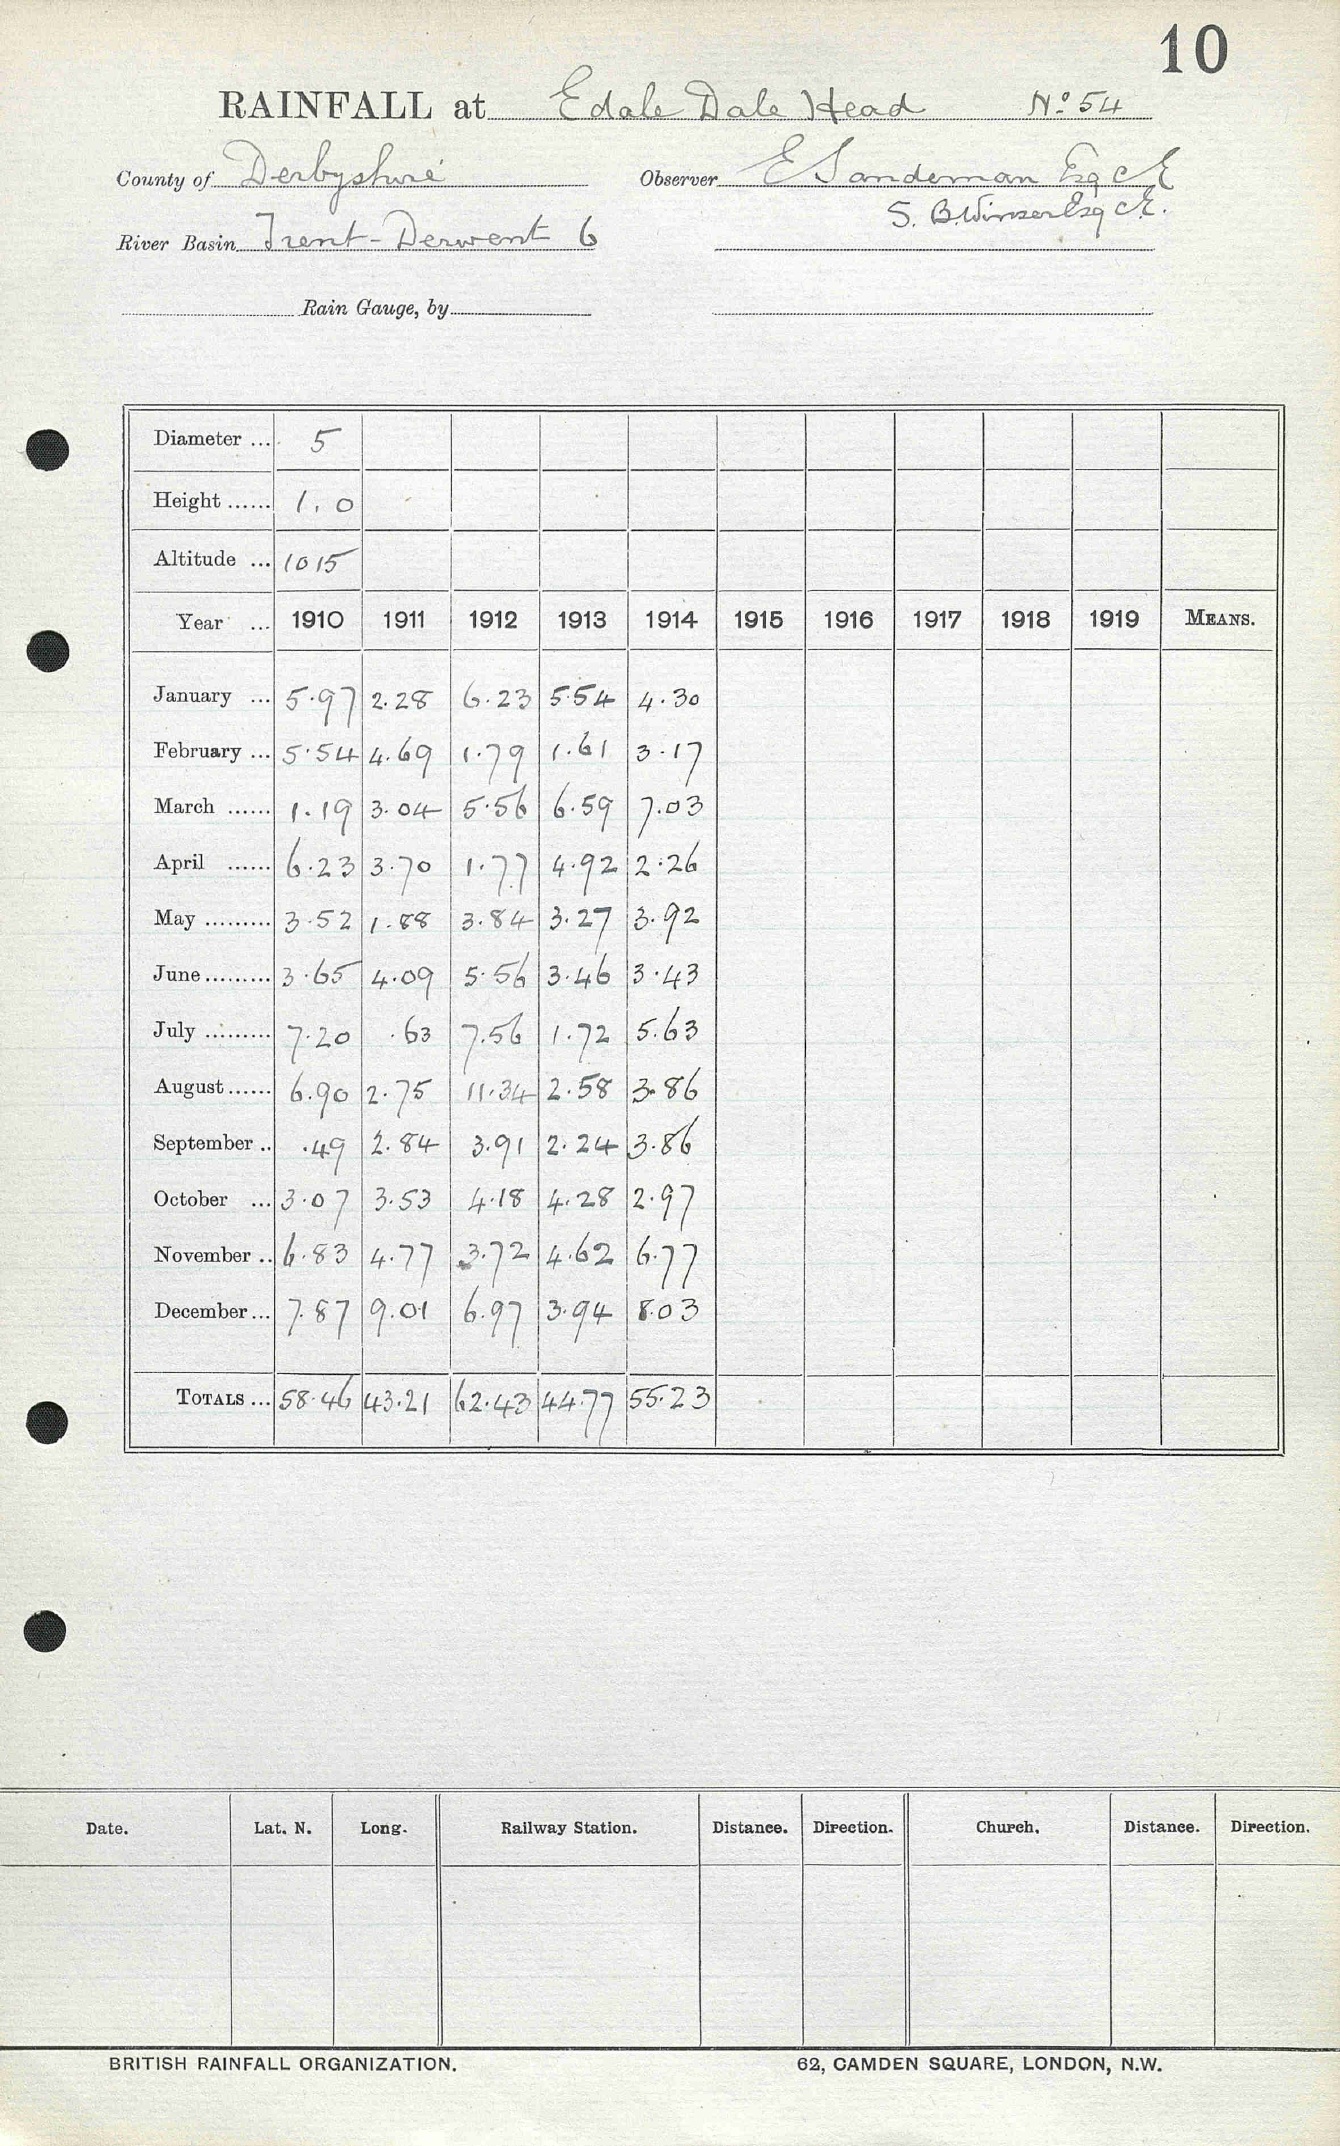 10
RAINFALL at Edale Dale Head No. 54
County of Derbyshire Observer E Sandeman Esq CE
S. B. Winser Esq C.E.
River Basin Trent - Derwent 6
Rain Gauge, by
Diameter ... 5
Height ...... 1.0
Altitude ... 1015
Year ... 1910 1911 1912 1913 1914 1915 1916 1917 1918 1919 MEANS.
January ... 5.97 2.28 6.23 5.54 4.30
February ... 5.54 4.69 1.79 1.61 3.17
March ...... 1.19 3.04 5.56 6.59 7.03
April ...... 6.23 3.70 1.77 4.92 2.26
May ......... 3.52 1.88 3.84 3.27 3.92
June ......... 3.65 4.09 5.56 3.46 3.43
July ......... 7.20 .63 7.56 1.72 5.63
August ...... 6.90 2.75 11.34 2.58 3.86
September .. .49 2.84 3.91 2.24 3.86
October ... 3.07 3.53 4.18 4.28 2.97
November .. 6.83 4.77 3.72 4.62 6.77
December ... 7.87 9.01 6.97 3.94 8.03
TOTALS ... 58.46 43.21 62.43 44.77 55.23
Date. Lat. N. Long. Railway Station. Distance. Direction. Church. Distance. Direction.
BRITISH RAINFALL ORGANIZATION. 62, CAMDEN SQUARE, LONDON, N.W.